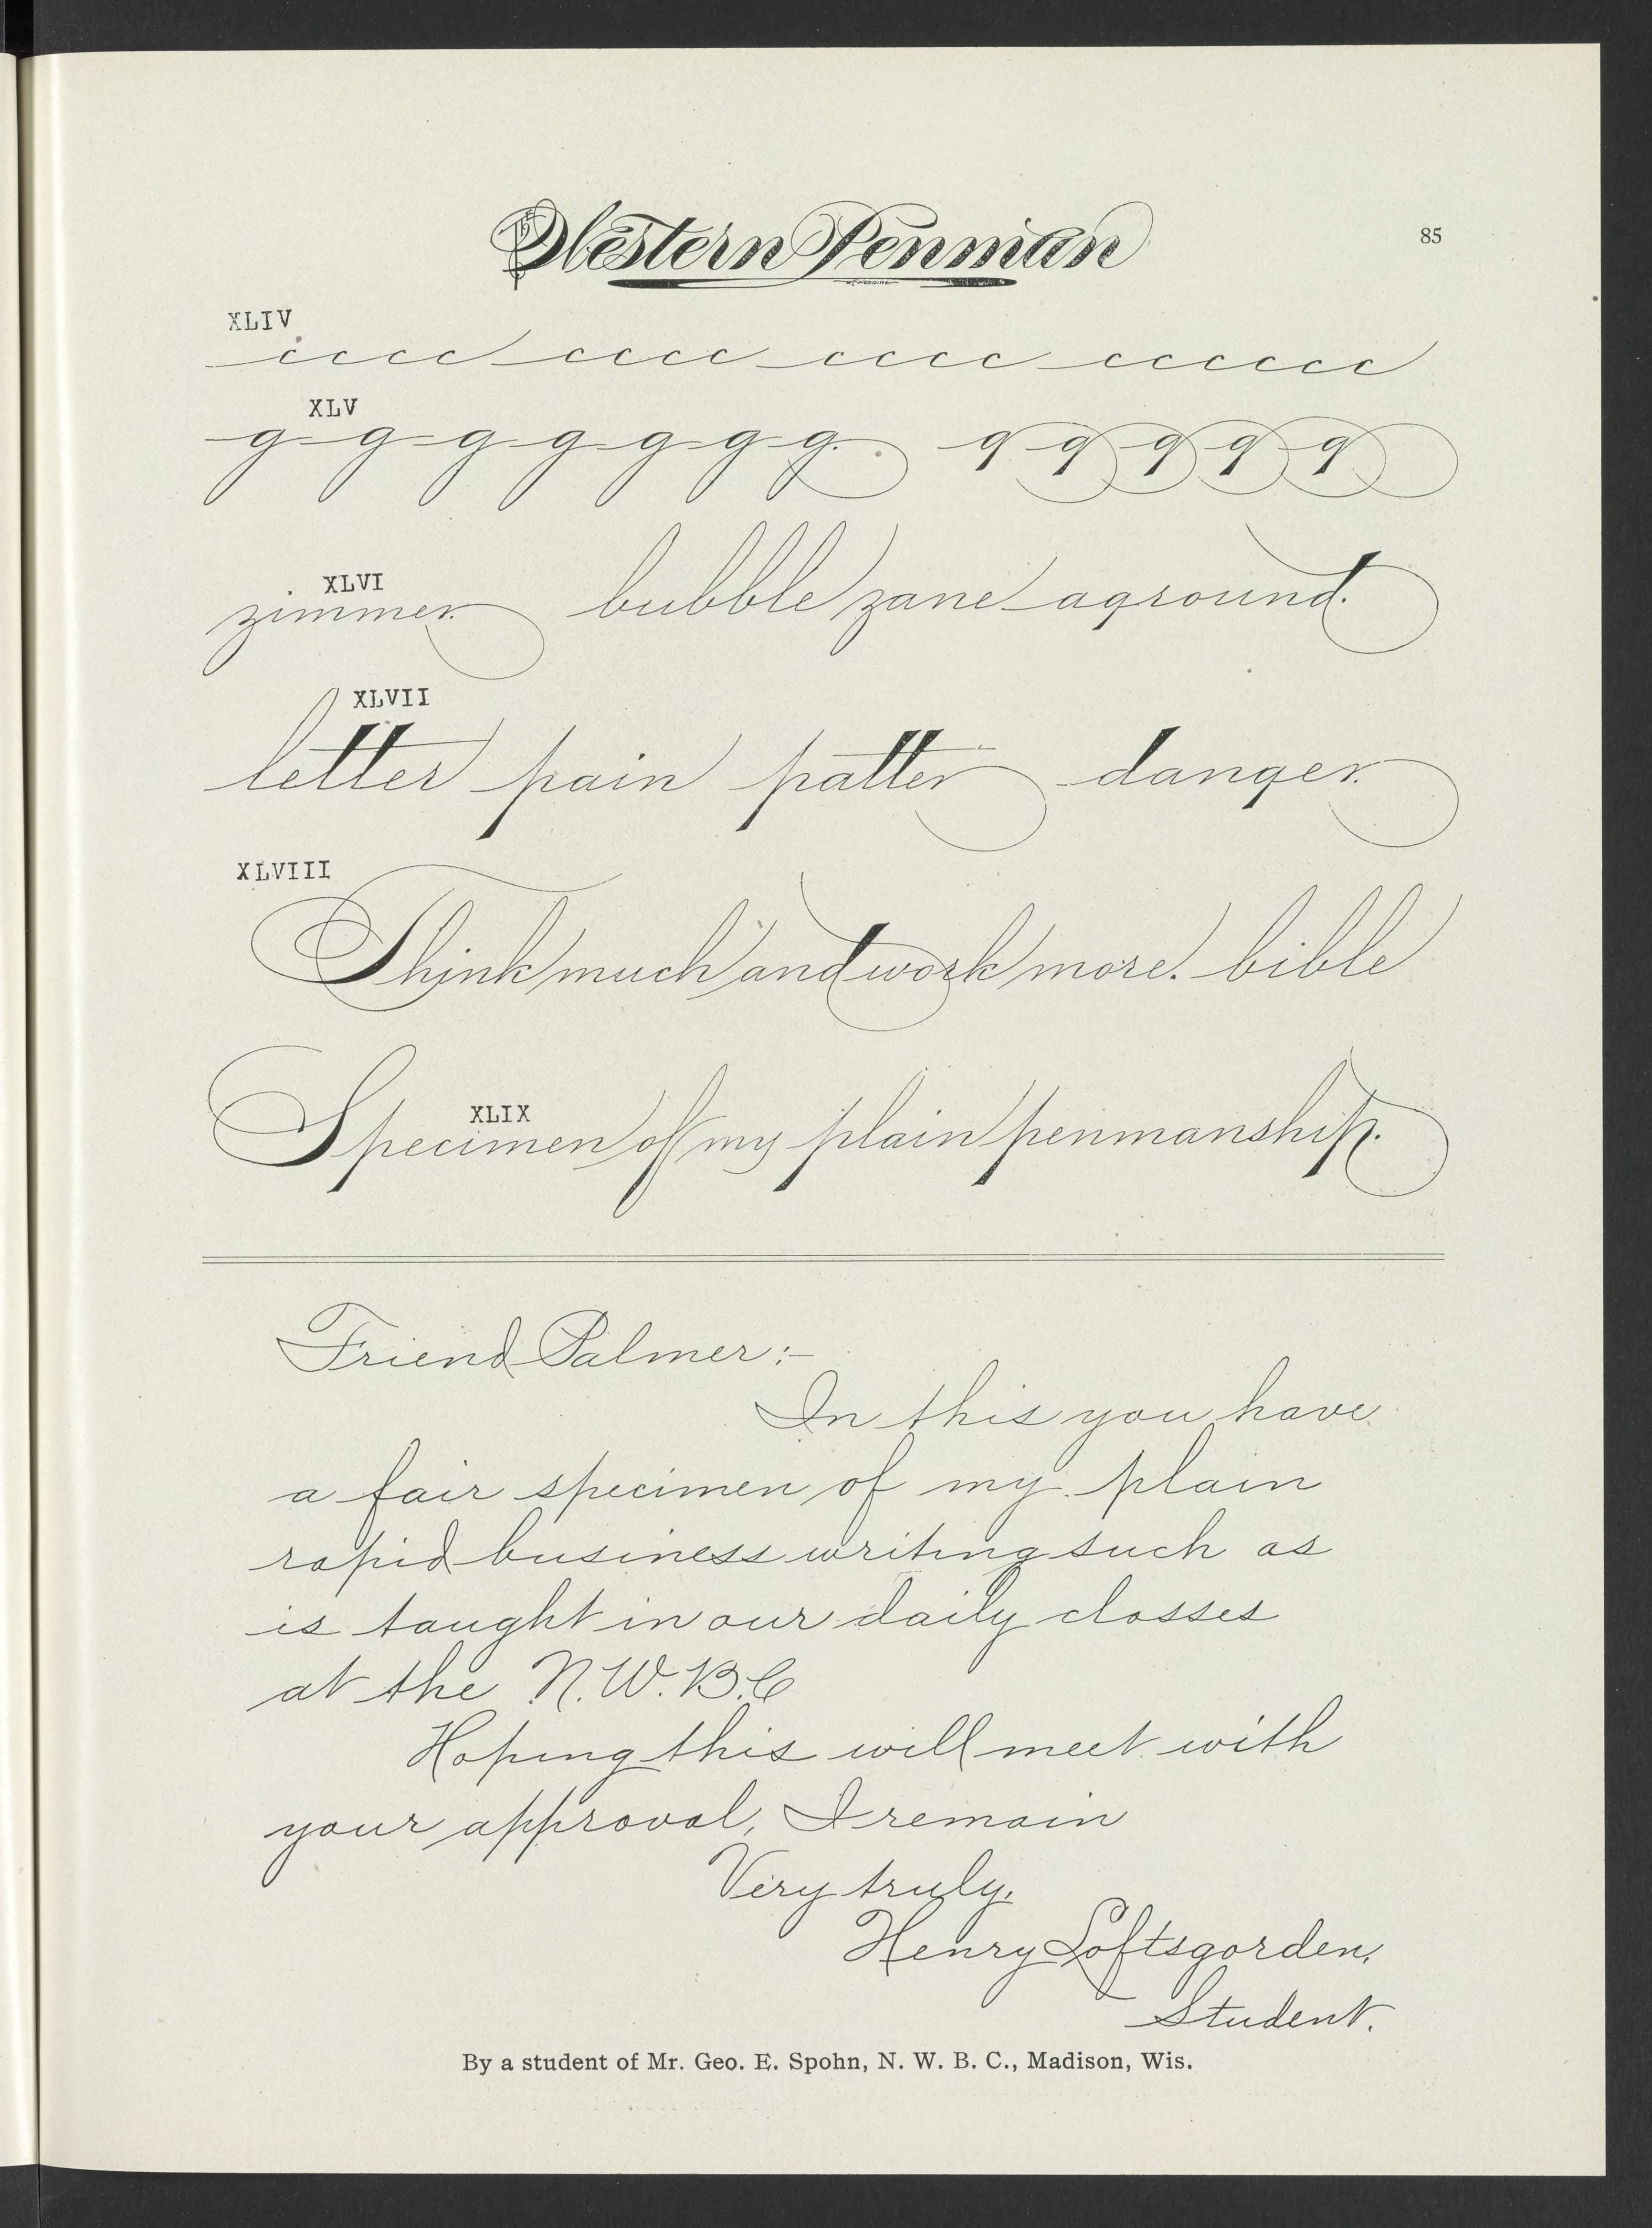 Western Penman
85
XLIV
c c c c c c c c c c c c c c c c c c
XLV
g g g g g g g g g g g g
XLVI
zimmer bubble zane aground.
XLVII
letter pain patter danger.
XLVIII
Think much and work more. bible
XLIX
Specimen of my plain penmanship.
Friend Palmer:-
In this you have
a fair specimen of my plain
rapid business writing such as
is taught in our daily classes
at the N.W.B.C
Hoping this will meet with
your approval, I remain
Very truly,
Henry Loftsgorden,
Student.
By a student of Mr. Geo. E. Spohn, N. W. B. C., Madison, Wis.